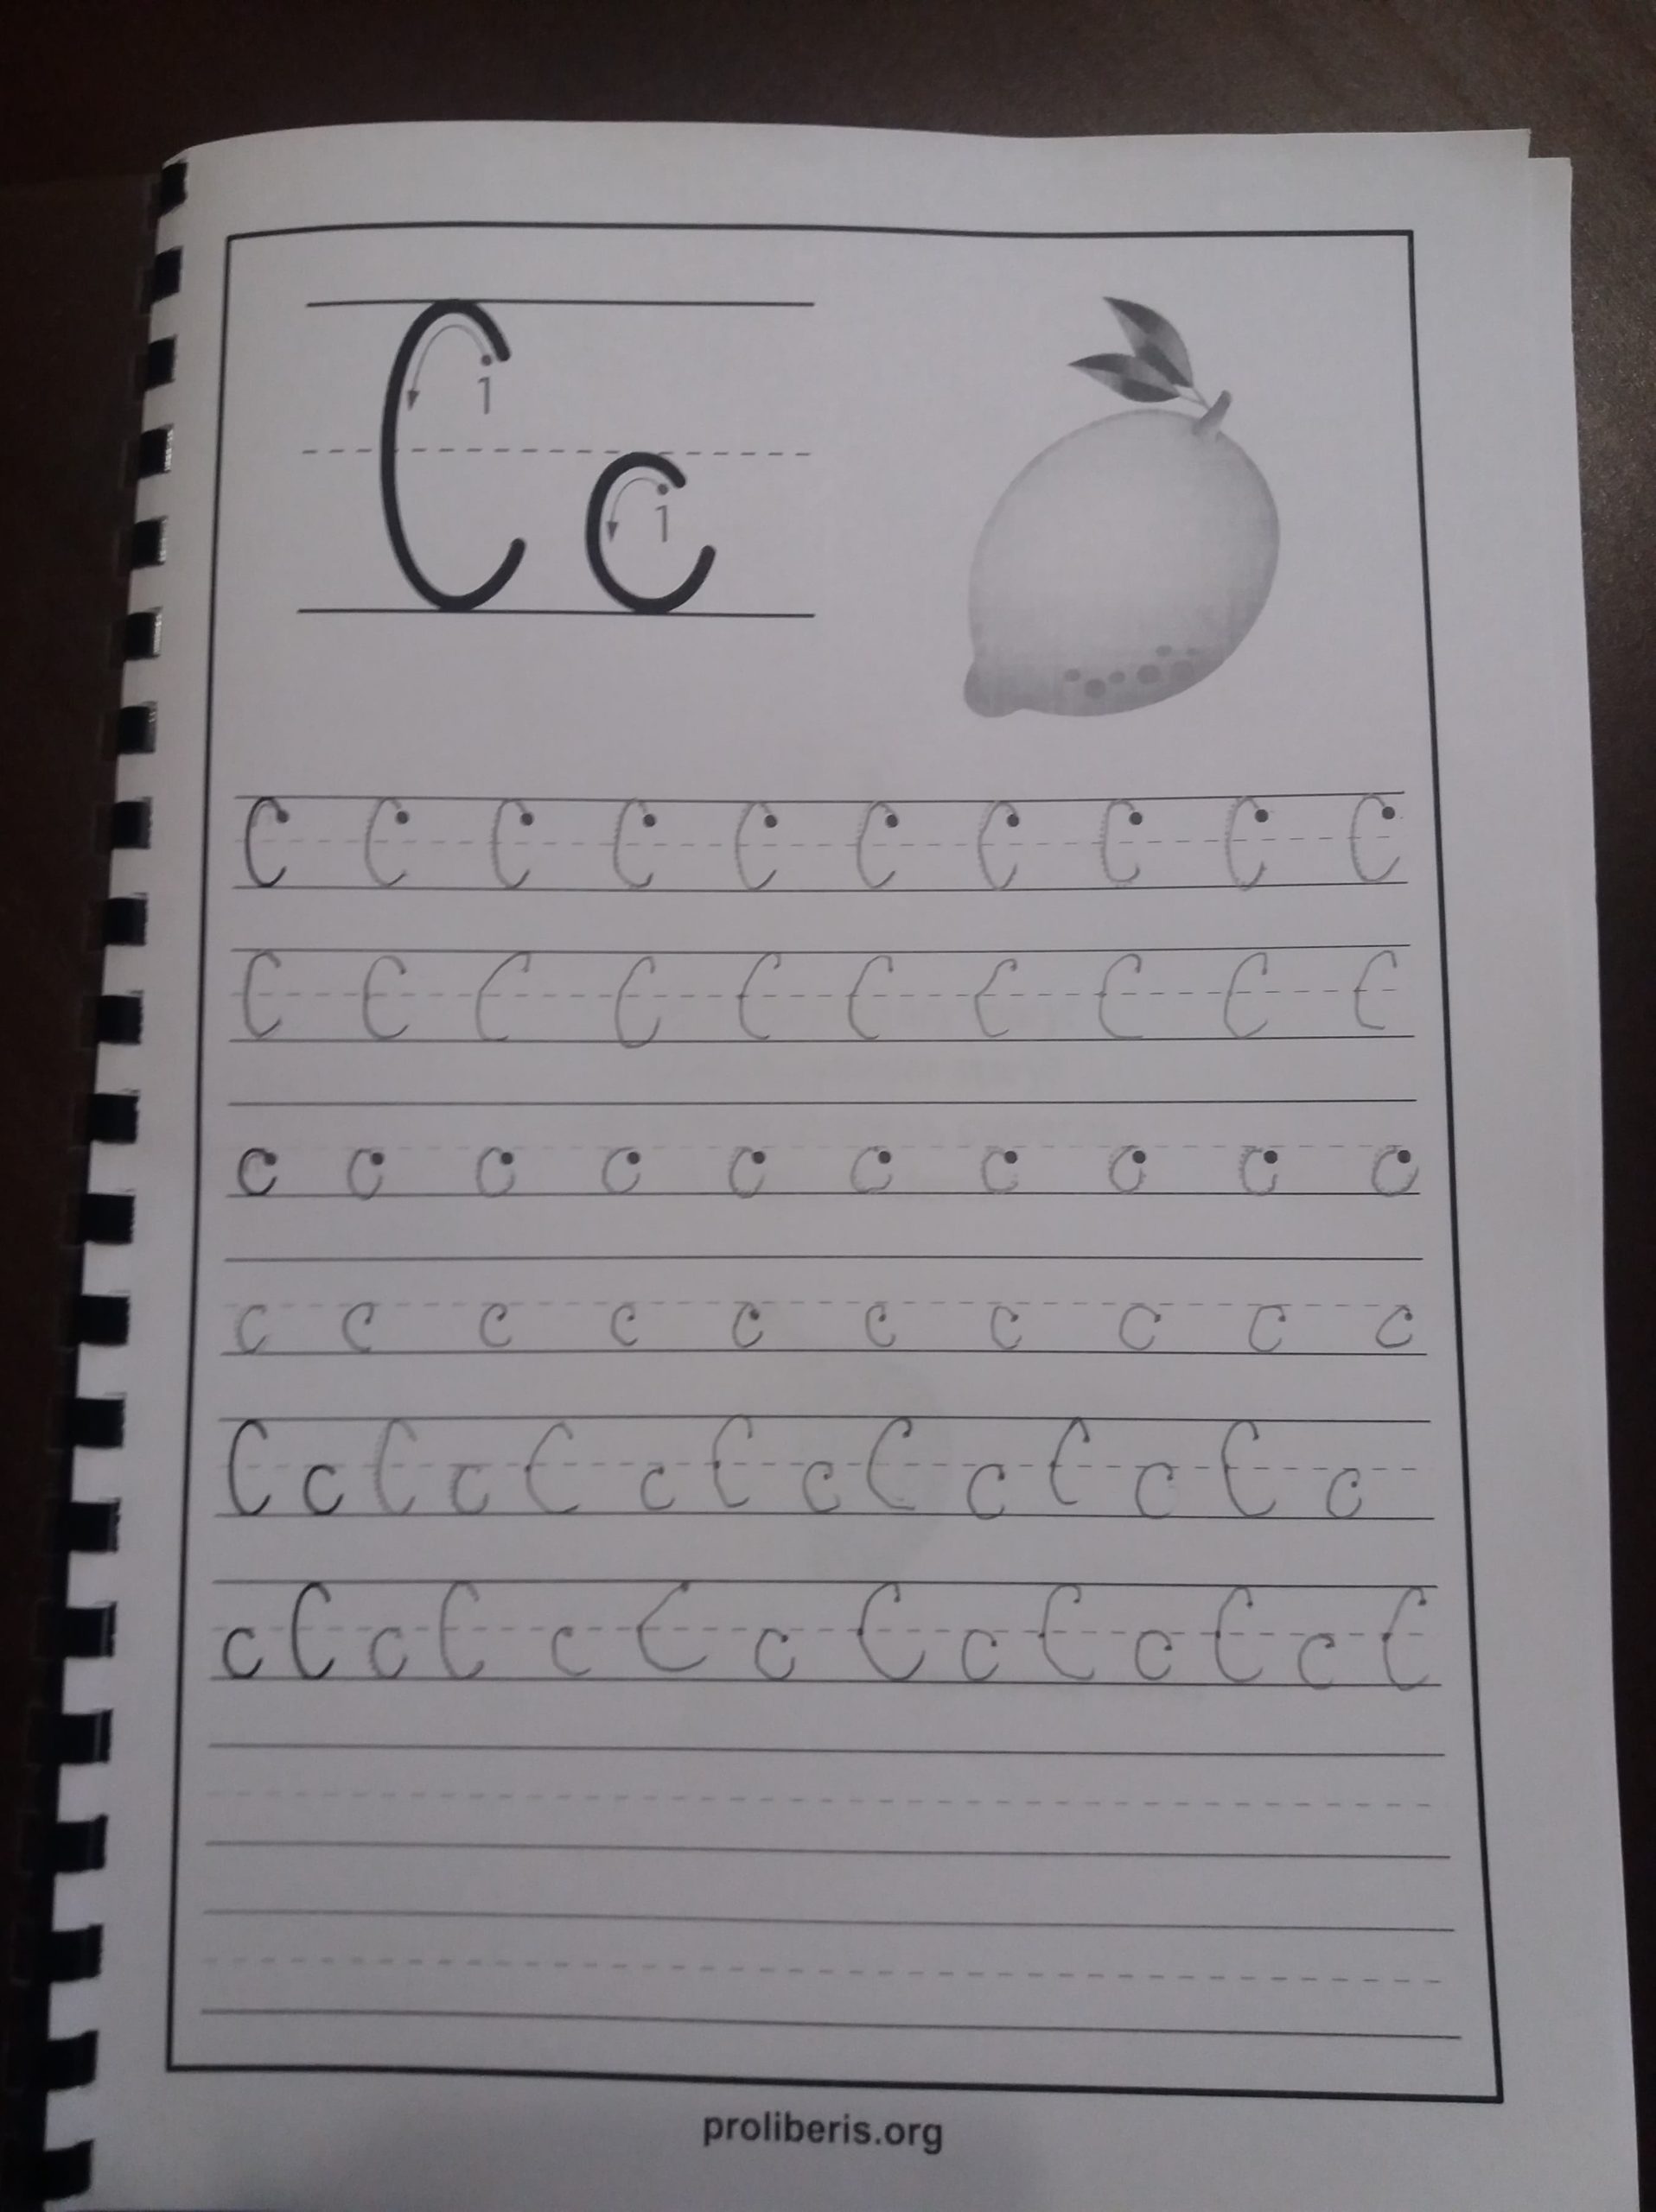 Cc
1
1
C C C C C C C C C C
C C C C C C C C C C
c c c c c c c c c c
c c c c c c c c c c
C c C c C c C c C c C c C c
c C c C c C c C c C c C c C
proliberis.org